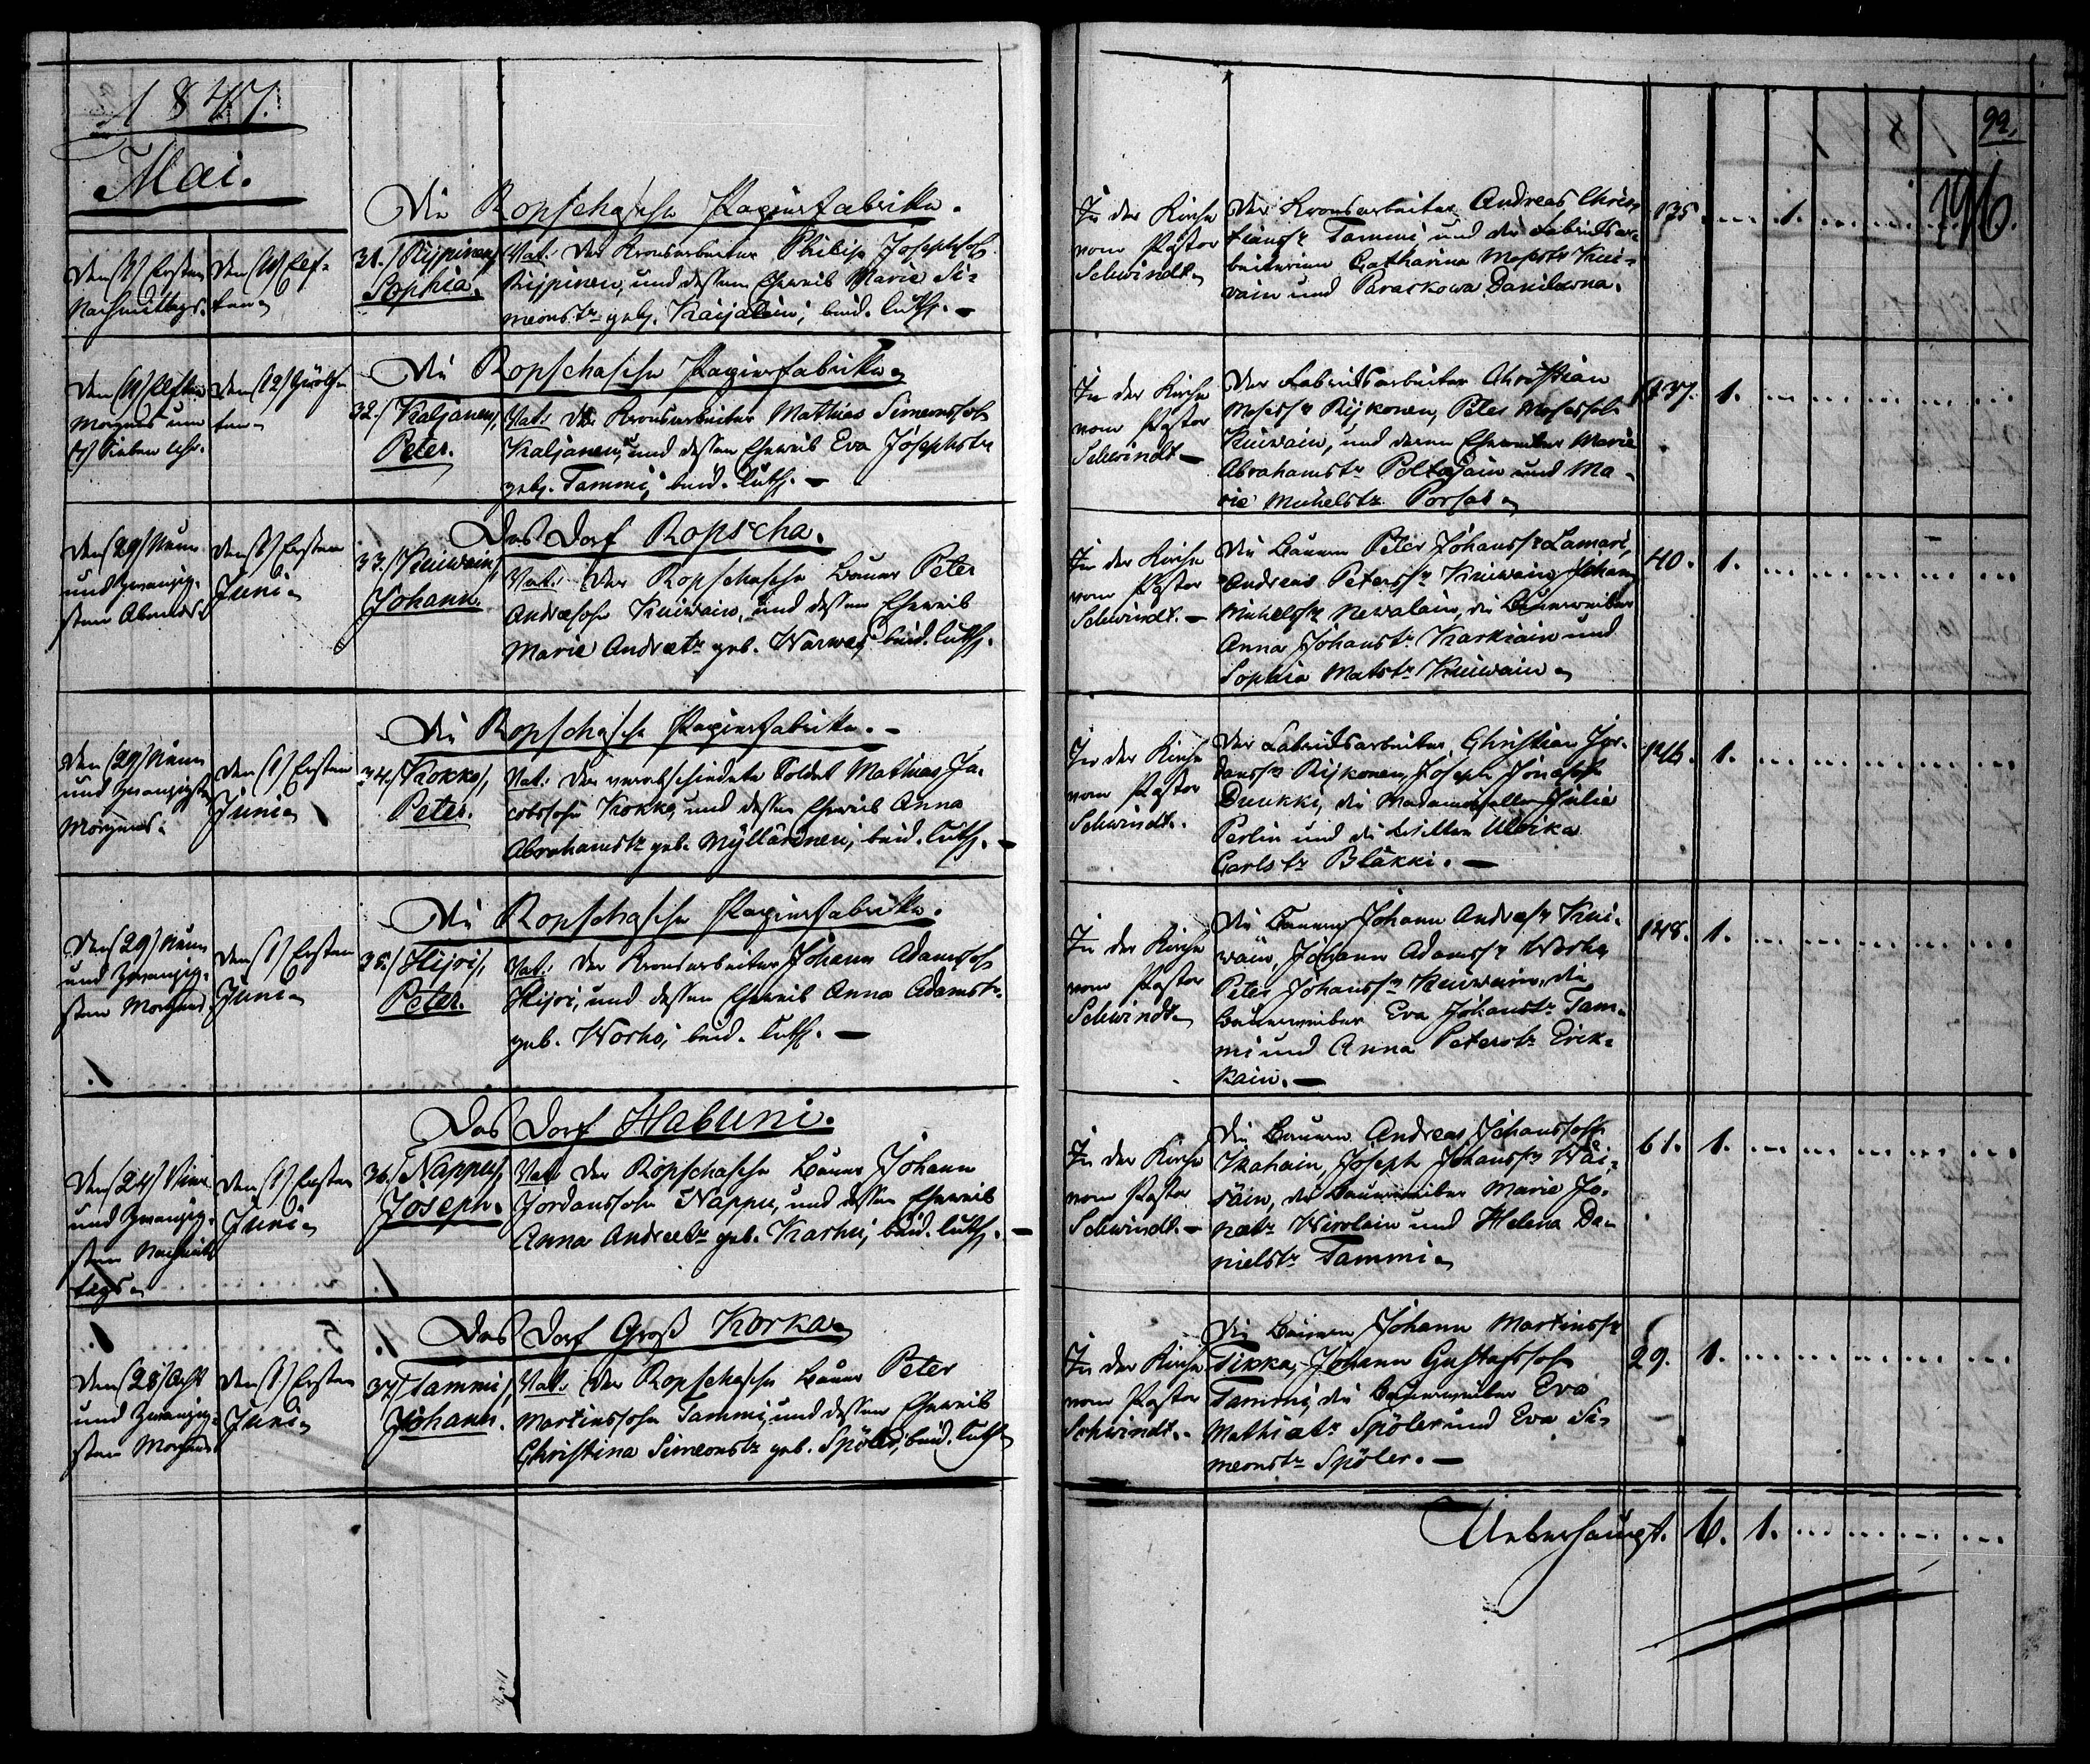 1847.
Mai.
Die Ropschasche Papierfabrike.
Den (1) Ersten
Nachmittags.
Den (11) Elf-
ten
31./ Rijpinen,
Sophia.
Vat: der Kronsarbeiter Philipp Josephsohn
Rijpinen, und dessen Eheweib Marie Si-
meonstr geb. Kaijalain, beid. luth.
In der Kirche
vom Pastor
Schwindt
Der Kronsarbeiter Andreas Chris-
tianss. Tammi, und die Fabriksar-
beiterinn Catharina Mosestr Kui-
wain und Paraskowa Danilowna.
135. 1.
99.
196.
Die Ropschasche Papierfabrike
Den (11) Elften
Morgens um
(7) Sieben Uhr.
Den (12) Zwölf-
ten
32./ Kaljanen,
Peter.
Vat: der Kronsarbeiter Mathias Simeonssohn
Kaljanen, und dessen Eheweib Eva Josephstr
geb. Tammi, beid. luth.
In der Kirche
vom Pastor
Schwindt
Der Fabriksarbeiter Christian
Mosess. Rijkonen, Peter Mosessohn
Kuiwain, und deren Eheweiber Marie
Abrahamstr Poltajain und Ma-
rie Michelstr Porsas
137. 1.
Das Dorf Ropscha.
Den (29) Neun
und zwanzig-
sten Abends
Den (1) Ersten
Juni
33./ Kuiwain,
Johann.
Vat: der Ropschasche Bauer Peter
Andreasohn Kuiwain, und dessen Eheweib
Marie Andreatr geb. Warwas, beid. luth.
In der Kirche
vom Pastor
Schwindt.
Die Bauern Peter Johanss. Lamari,
Andreas Peterss. Kuiwain, Johann
Michelss. Newalain, die Bauerweiber
Anna Johanstr. Karkiain und
Sophia Matstr Kuiwain
40. 1.
Die Ropschasche Papierfabrike.
Den (29) Neun
und zwanzigsten
Morgens.
Den (1) Ersten
Juni
34./ Kokko,
Peter.
Vat: der verabschiedete Soldat Mathias Ja-
cobssohn Kokko, und dessen Eheweib Anna
Abrahamstr geb. Myllärinen, beid. luth.
In der Kirche
vom Pastor
Schwindt.
Der Fabriksarbeiter Christian Jor-
danss. Rijkonen, Joseph Jonasohn
Duukki, die Mademoiselle Julie
Perlin und die Ulrika
Carlstr Bläkki.
146. 1.
Die Ropschasche Papierfabrike.
Den (29) Neun
und Zwanzig-
sten Morgens
Den (1) Ersten
Juni
35./ Hijri,
Peter.
Vat: der Kronsarbeiter Johann Adamssohn
Hijri, und dessen Eheweib Anna Adamstr.
geb. Worho, beid. luth.
In der Kirche
vom Pastor
Schwindt
Die Bauern Johann Andreass. Kui-
wain, Johann Adamss. Worho
Peter Johanss. Kuiwain, die
Bauerweiber Eva Johanstr Tam-
mi und Anna Peterstr Erik-
kain.
148. 1.
Das Dorf Habuni.
Den (24) Vier
und Zwanzig-
sten Nachmit-
tags
Den (1) Ersten
Juni
36./ Nappu,
Joseph.
Vat: der Ropschasche Bauer Johann
Jordanssohn Nappu, und dessen Eheweib
Anna Andreatr geb. Karhu, beid. luth.
In der Kirche
vom Pastor
Schwindt.
Die Bauern Andreas Johanssohn
Ikahain, Joseph Johanss. Wäi-
säin, die Bauerweiber Marie Jo-
natr Wirolain und Helena Da-
nielstr Tammi
61. 1.
Das Dorf Groß Korka
Den (28) Acht
und Zwanzig-
sten Morgens
Den (1) Ersten
Juni
37./ Tammi,
Johann.
Vat: der Ropschasche Bauer Peter
Martinssohn Tammi, und dessen Eheweib
Christina Simeonstr geb. Spöler, beid. luth
In der Kirche
vom Pastor
Schwindt.
Die Bauern Johann Martinss.
Tikka, Johann Gustafssohn
Tammi, die Bauerweiber Eva
Mathiatr Spöler und Eva Si-
meonstr Spöler.
29. 1.
Ueberhaupt. 6. 1.